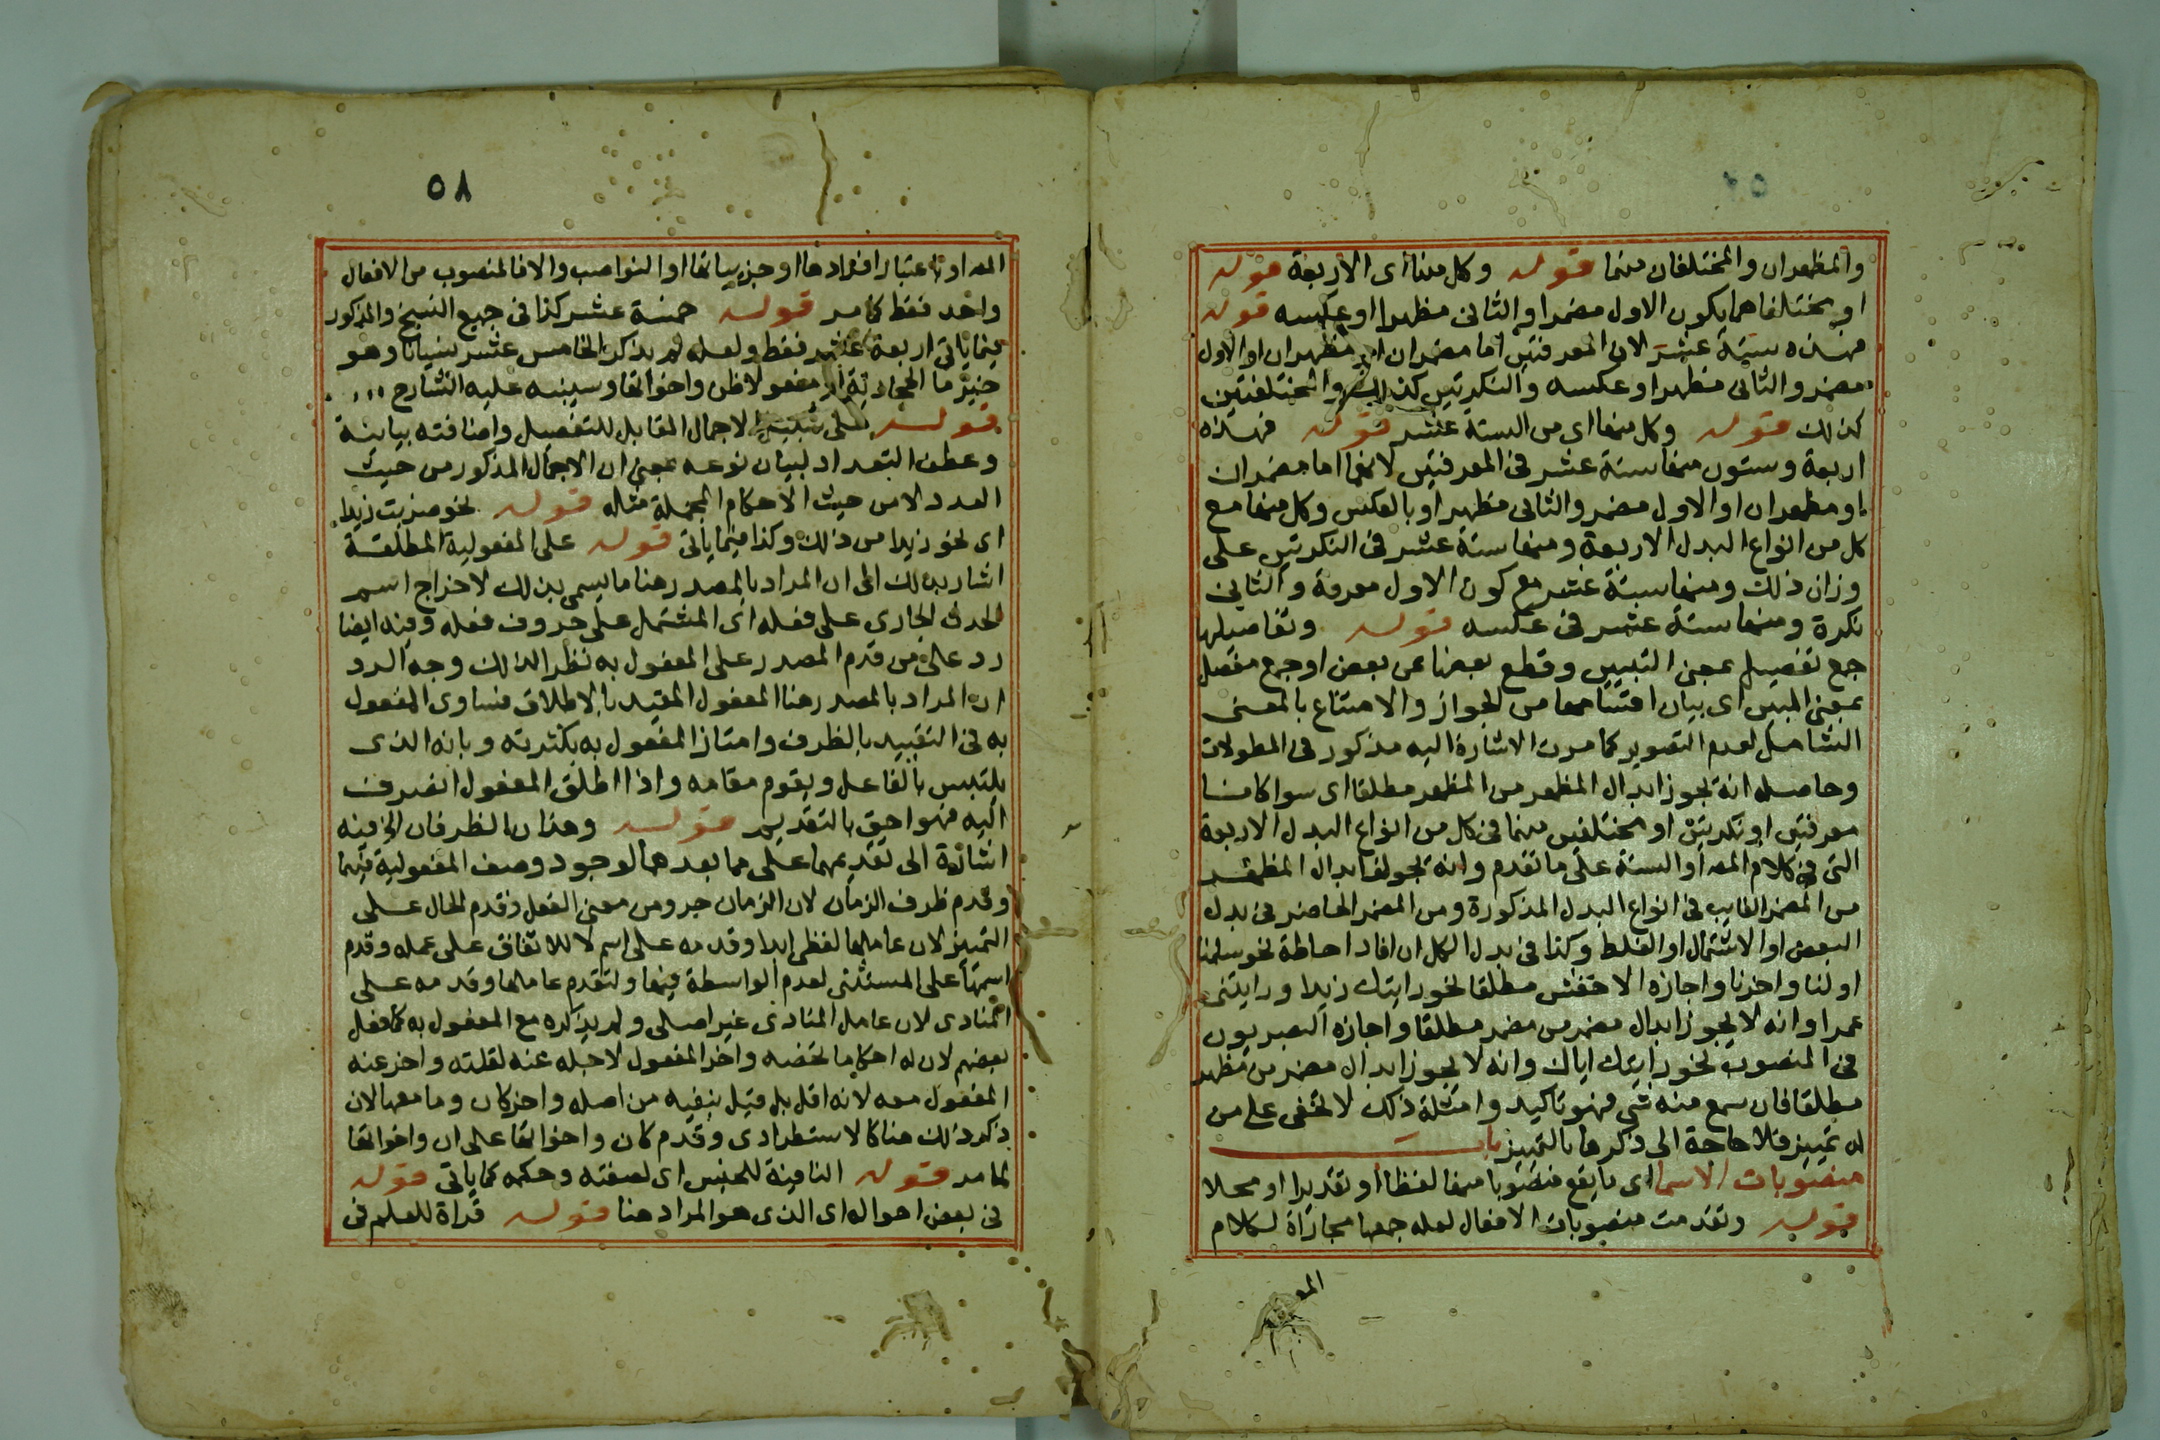 والمظهران والمختلفان منهما قوله وكل منها اى الاربعة قوله
او مختلفاهما يكون الاول مضمرا والثانى مظهرا او عكسه قوله
فهذه ستة عشر لان المعرفتين اما مضمران او مظهران او الاول
مضمر والثانى مظهر او عكسه والنكرتين كذلك والمختلفتين
كذلك قوله وكل منها اى من الستة عشر قوله فهذه
اربعة وستون منها ستة عشر فى المعرفتين لانهما اما مضمران
او مظهران او الاول مضمر والثانى مظهر او بالعكس وكل منها مع
كل من انواع البدل الاربعة ومنها ستة عشر فى النكرتين على
وزان ذلك ومنها ستة عشر مع كون الاول معرفة والثانى
نكرة ومنها ستة عشر فى عكسه قوله وتفاصيلها
جمع تفصيل بمعنى التبيين وقطع بعضها عن بعض او جمع مفصل
بمعنى المبين اى بيان اقسامها من الجواز والامتناع بالمعنى
الشامل لعدم التصوير كما مرت الاشارة اليه مذكور فى المطولات
وحاصله انه يجوز ابدال المظهر من المظهر مطلقا اى سوا كانا
معرفتين او نكرتين او مختلفين منهما فى كل من انواع البدل الاربعة
التى فى كلام المص او الستة على ما تقدم وانه يجوز ابدال المظهر
من المضمر الغايب فى انواع البدل المذكورة ومن المضمر الحاضر فى بدل
البعض او الاشتمال او الغلط وكذا فى بدل الكل ان افاد احاطة نحو سلمنا
اولنا واخرنا واجازه الاخفش مطلقا نحو رايتك زيدا ورايتنى
عمرا وانه لا يجوز ابدال مضمر من مضمر مطلقا واجازه البصريون
فى المنصوب نحو رايتك اياك وانه لا يجوز ابدال مضمر من مظهر
مطلقا فان سمع منه شى فهو تاكيد وامثلة ذلك لا تخفى على من
له تمييز فلا حاجة الى ذكرها بالتمييز باب
منصوبات الاسما اى ما يقع منصوبا منها لفظا او تقديرا او محلا
قوله وتقدمت منصوبات الافعال لعله جمعها مجازاة لكلام
المص
٥٨
المص او باعتبار افرادها او جزيياتها او النواصب والا فالمنصوب من الافعال
واحد فقط كما مر قوله خمسة عشر كذا فى جميع النسخ والمذكور
فيما ياتى اربعة عشر فقط ولعله لم يذكر الخامس عشر نسيانا وهو
خبر ما الحجازية او مفعولا ظن واخواتها وسينبه عليه الشارح
قوله على سبيل الاجمال المقابل للتفصيل واضافته بيانية
وعطف التعداد لبيان نوعه بمعنى ان الاجمال المذكور من حيث
العدد لا من حيث الاحكام المجملة مثله قوله نحو ضربت زيدا
اى نحو زيدا من ذلك وكذا فيما ياتى قوله على المفعولية المطلقة
اشار بذلك الى ان المراد بالمصدر هنا ما يسمى بذلك لاخراج اسم
الحدث الجارى على فعله اى المشتمل على حروف فعله وفيه ايضا
رد على من قدم المصدر على المفعول به نظرا لذلك وجه الرد
ان المراد بالمصدر هنا المفعول المقيد بالاطلاق فساوى المفعول
به فى التقييد بالظرف وامتاز المفعول به بكثرته وبانه الذى
يلتبس بالفاعل ويقوم مقامه واذا اطلق المفعول انصرف
اليه فهو احق بالتقديم قوله وهذان الظرفان الخ فيه
اشارة الى تقديمهما على ما بعدهما لوجود وصف المفعولية فيهما
وقدم ظرف الزمان لان الزمان جزو من معنى الفعل وقدم الحال على
التمييز لان عاملها لفظى ابدا وقدمه على اسم لا للاتفاق على عمله وقدم
اسمها على المستثنى لعدم الواسطة فيها ولتقدم عاملها وقدمه على
المنادى لان عامل المنادى غير اصلى ولم يذكره مع المفعول به كما فعل
بعضهم لان له احكاما تخصه واخر المفعول لاجله عنه لقلته واخر عنه
المفعول معه لانه اقل بل قيل بنفيه من اصله واخر كان وما معها لان
ذكر ذلك هنا كالاستطرادى وقدم كان واخواتها على ان واخواتها
لما مر قوله النافية للجنس اى لصفته وحكمه كما ياتى قوله
فى بعض احواله اى الذى هو المراد هنا قوله قراة للعلم فى